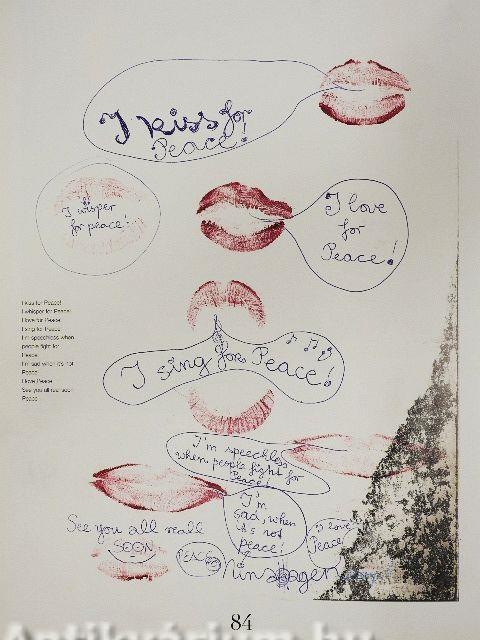 I kiss for
Peace!
I wisper
for peace!
I love
for
Peace!
I kiss for Peace!
I whisper for Peace!
I love for Peace
I sing for Peace!
I'm speechless when
people fight for
Peace!
I'm sad when it's not
Peace!
I love Peace
See you all real soon
Peace
I sing for Peace!
I'm speechless
when people fight for
Peace!
I'm
sad, when
it's not
peace!
I love
Peace!
See you all reall
SOON
PEACE
Nina Hagen
84
Antikvárium.hu